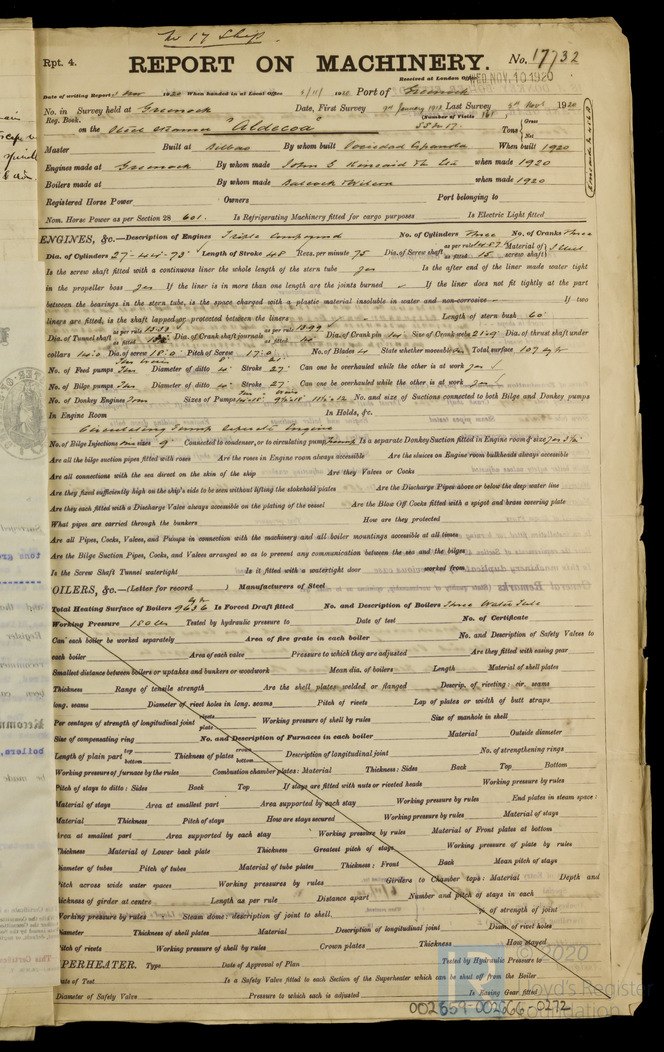 No 17 Ship.
Rpt. 4. REPORT ON MACHINERY. No. 17732
Received at London Office WED. NOV. 10 1920
Date of writing Report 1920 When handed in at Local Office 6/11/1920 Port of Greenock
No. in Survey held at Greenock Date, First Survey 9th January 1918 Last Survey 5th Novr 1920
Reg. Book. (Number of Visits 161)
on the Steel Steamer "Aldecoa" Tons { Gross Net
Master Built at Bilbao By whom built Sociedad Espanola When built 1920
Engines made at Greenock By whom made John G. Kincaid & Co Ltd when made 1920
Boilers made at By whom made Babcock & Wilcox when made 1920
Registered Horse Power Owners Port belonging to
Nom. Horse Power as per Section 28 601. Is Refrigerating Machinery fitted for cargo purposes Is Electric Light fitted
ENGINES, &c.—Description of Engines Triple Compound No. of Cylinders Three No. of Cranks Three
Dia. of Cylinders 27-44-73 Length of Stroke 48 Revs. per minute 75 Dia. of Screw shaft as per rule 14.87 as fitted 15 Material of screw shaft Steel
Is the screw shaft fitted with a continuous liner the whole length of the stern tube yes Is the after end of the liner made water tight
in the propeller boss yes If the liner is in more than one length are the joints burned If the liner does not fit tightly at the part
between the bearings in the stern tube, is the space charged with a plastic material insoluble in water and non-corrosive If two
liners are fitted, is the shaft lapped or protected between the liners Length of stern bush 60
Dia. of Tunnel shaft as per rule as fitted Dia. of Crank shaft journals as per rule 13.99 as fitted 14 Dia. of Crank pin 14 Size of Crank webs Dia. of thrust shaft under
collars 14.0 Dia. of screw 18.0 Pitch of Screw 17.0 No. of Blades 4 State whether moveable Total surface 107
No. of Feed pumps Diameter of ditto 4 Stroke 27 Can one be overhauled while the other is at work yes
No. of Bilge pumps Diameter of ditto 4 Stroke 27 Can one be overhauled while the other is at work yes
No. of Donkey Engines Four Sizes of Pumps No. and size of Suctions connected to both Bilge and Donkey pumps
In Engine Room In Holds, &c.
Circulating Pump
No. of Bilge Injections one sizes 9 Connected to condenser, or to circulating pump Pump Is a separate Donkey Suction fitted in Engine room & size yes 3½
Are all the bilge suction pipes fitted with roses Are the roses in Engine room always accessible Are the sluices on Engine room bulkheads always accessible
Are all connections with the sea direct on the skin of the ship Are they Valves or Cocks
Are they fixed sufficiently high on the ship's side to be seen without lifting the stokehold plates Are the Discharge Pipes above or below the deep water line
Are they each fitted with a Discharge Valve always accessible on the plating of the vessel Are the Blow Off Cocks fitted with a spigot and brass covering plate
What pipes are carried through the bunkers How are they protected
Are all Pipes, Cocks, Valves, and Pumps in connection with the machinery and all boiler mountings accessible at all times
Are the Bilge Suction Pipes, Cocks, and Valves arranged so as to prevent any communication between the sea and the bilges
Is the Screw Shaft Tunnel watertight Is it fitted with a watertight door worked from
OILERS, &c.—(Letter for record ) Manufacturers of Steel
Total Heating Surface of Boilers 9636 Is Forced Draft fitted No. and Description of Boilers Three Water Tube
Working Pressure 180 lbs Tested by hydraulic pressure to Date of test No. of Certificate
Can each boiler be worked separately Area of fire grate in each boiler No. and Description of Safety Valves to
each boiler Area of each valve Pressure to which they are adjusted Are they fitted with easing gear
Smallest distance between boilers or uptakes and bunkers or woodwork Mean dia. of boilers Length Material of shell plates
Thickness Range of tensile strength Are the shell plates welded or flanged Descrip. of riveting: cir. seams
long. seams Diameter of rivet holes in long. seams Pitch of rivets Lap of plates or width of butt straps
Per centages of strength of longitudinal joint rivets plate Working pressure of shell by rules Size of manhole in shell
Size of compensating ring No. and Description of Furnaces in each boiler Material Outside diameter
Length of plain part top bottom Thickness of plates crown bottom Description of longitudinal joint No. of strengthening rings
Working pressure of furnace by the rules Combustion chamber plates: Material Thickness: Sides Back Top Bottom
Pitch of stays to ditto: Sides Back Top If stays are fitted with nuts or riveted heads Working pressure by rules
Material of stays Area at smallest part Area supported by each stay Working pressure by rules End plates in steam space:
Material Thickness Pitch of stays How are stays secured Working pressure by rules Material of stays
Area at smallest part Area supported by each stay Working pressure by rules Material of Front plates at bottom
Thickness Material of Lower back plate Thickness Greatest pitch of stays Working pressure of plate by rules
Diameter of tubes Pitch of tubes Material of tube plates Thickness: Front Back Mean pitch of stays
Pitch across wide water spaces Working pressures by rules Girders to Chamber tops: Material Depth and
thickness of girder at centre Length as per rule Distance apart Number and pitch of stays in each
Working pressure by rules Steam dome: description of joint to shell % of strength of joint
Diameter Thickness of shell plates Material Description of longitudinal joint Diam. of rivet holes
Pitch of rivets Working pressure of shell by rules Crown plates Thickness How stayed
UPERHEATER. Type Date of Approval of Plan Tested by Hydraulic Pressure to
Date of Test Is a Safety Valve fitted to each Section of the Superheater which can be shut off from the Boiler
Diameter of Safety Valve Pressure to which each is adjusted Is Easing Gear fitted
© 2020
Lloyd's Register
Foundation
002659-002666-0272